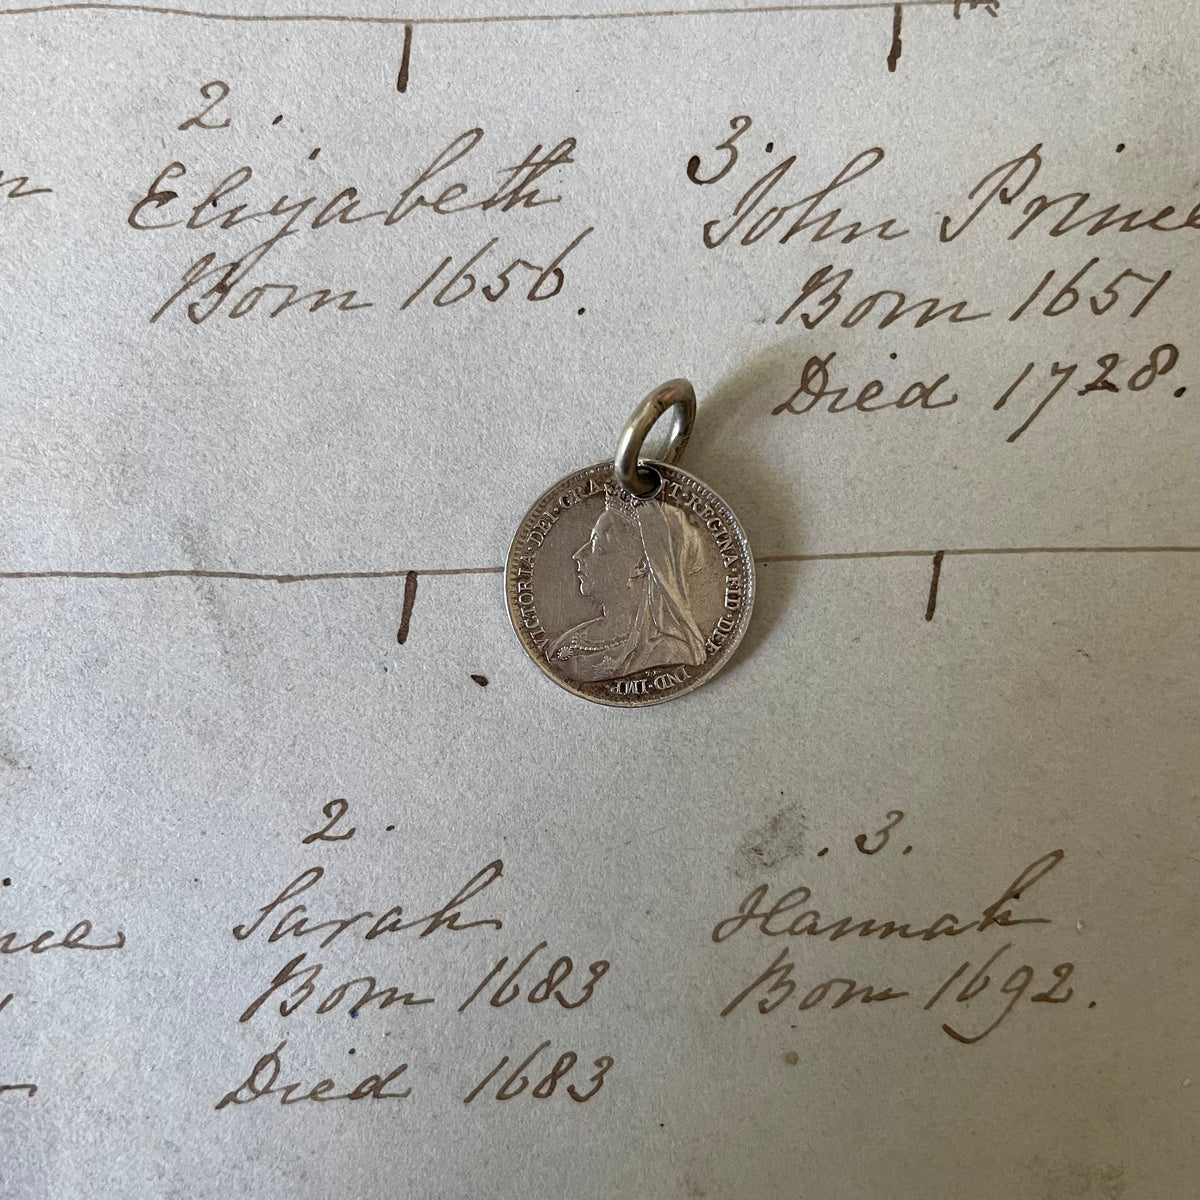 2.
Elizabeth
Born 1656.
3.
John Prince
Born 1651
Died 1728.
VICTORIA·DEI·GRA
T·REGINA·FID·DEF·
IND·IMP·
2.
Sarah
Born 1683
Died 1683
.3.
Hannah
Born 1692.